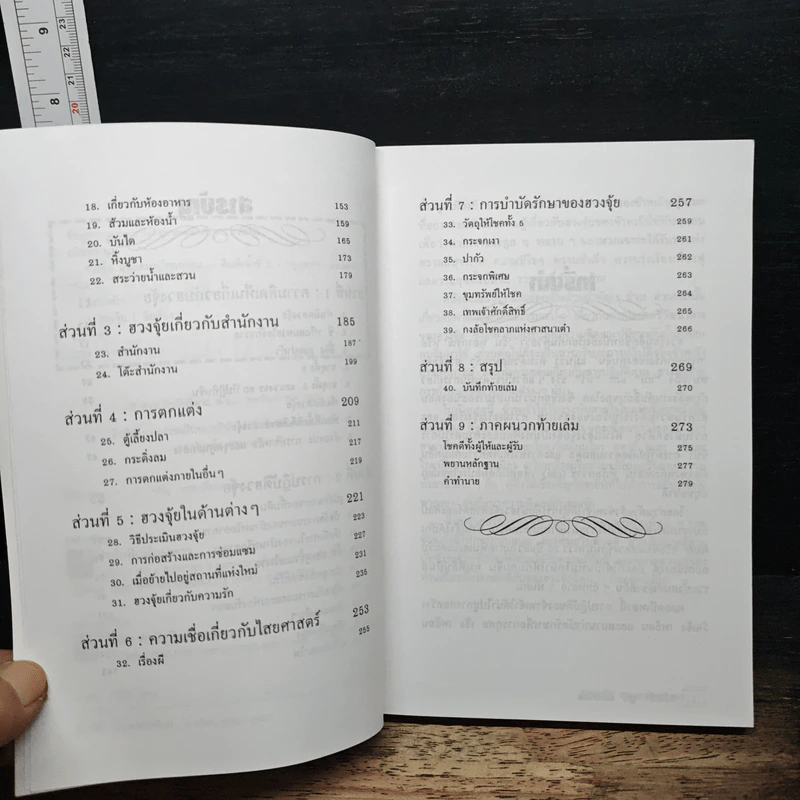 9
8
23
22
21
20
18. เกี่ยวกับห้องอาหาร 153
19. ส้วมและห้องน้ำ 159
20. บันได 165
21. หิ้งบูชา 173
22. สระว่ายน้ำและสวน 179
ส่วนที่ 3 : ฮวงจุ้ยเกี่ยวกับสำนักงาน 185
23. สำนักงาน 187
24. โต๊ะสำนักงาน 199
ส่วนที่ 4 : การตกแต่ง 209
25. ตู้เลี้ยงปลา 211
26. กระดิ่งลม 217
27. การตกแต่งภายในอื่นๆ 219
ส่วนที่ 5 : ฮวงจุ้ยในด้านต่างๆ 221
28. วิธีประเมินฮวงจุ้ย 223
29. การก่อสร้างและการซ่อมแซม 227
30. เมื่อย้ายไปอยู่สถานที่แห่งใหม่ 231
31. ฮวงจุ้ยเกี่ยวกับความรัก 235
ส่วนที่ 6 : ความเชื่อเกี่ยวกับไสยศาสตร์ 253
32. เรื่องผี 255
ส่วนที่ 7 : การบำบัดรักษาของฮวงจุ้ย 257
33. วัตถุให้โชคทั้ง 5 259
34. กระจกเงา 261
35. ปากัว 262
36. กระจกพิเศษ 263
37. ขุมทรัพย์ให้โชค 264
38. เทพเจ้าศักดิ์สิทธิ์ 265
39. กงล้อโชคลาภแห่งศาสนาเต๋า 266
ส่วนที่ 8 : สรุป 269
40. บันทึกท้ายเล่ม 270
ส่วนที่ 9 : ภาคผนวกท้ายเล่ม 273
โชคดีทั้งผู้ให้และผู้รับ 275
พยานหลักฐาน 277
คำทำนาย 279